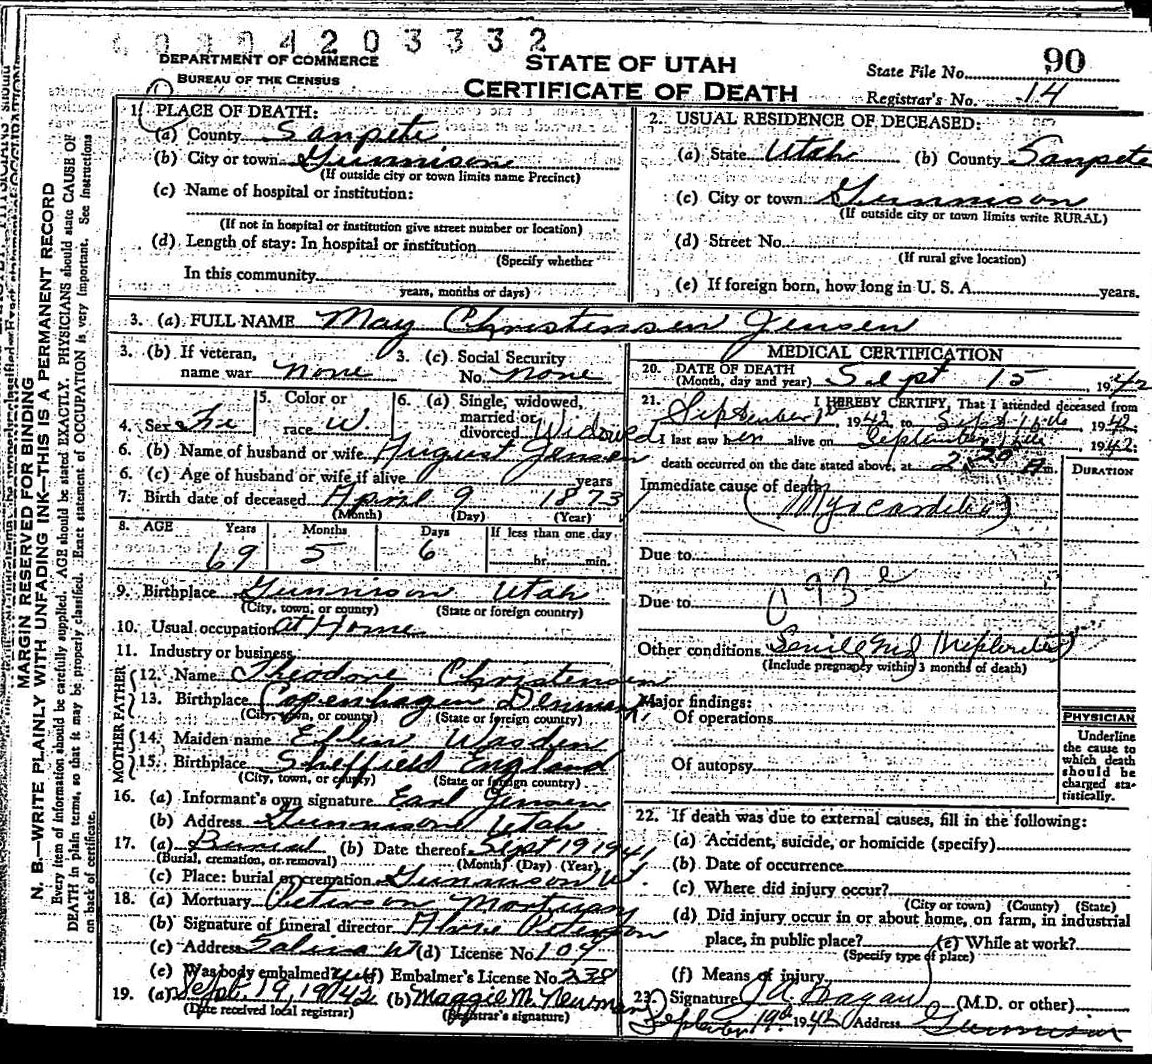 0 0 0 4 2 0 3 3 3 2
DEPARTMENT OF COMMERCE
BUREAU OF THE CENSUS
STATE OF UTAH
CERTIFICATE OF DEATH
State File No. 90
Registrar's No. 14
MARGIN RESERVED FOR BINDING
N. B.—WRITE PLAINLY WITH UNFADING INK—THIS IS A PERMANENT RECORD
Every item of information should be carefully supplied. AGE should be stated EXACTLY. PHYSICIANS should state CAUSE OF
DEATH in plain terms, so that it may be properly classified. Exact statement of OCCUPATION is very important. See instructions
on back of certificate.
1. PLACE OF DEATH:
(a) County Sanpete
(b) City or town Gunnison
(If outside city or town limits name Precinct)
(c) Name of hospital or institution:
(If not in hospital or institution give street number or location)
(d) Length of stay: In hospital or institution
(Specify whether
In this community
years, months or days)
2. USUAL RESIDENCE OF DECEASED:
(a) State Utah (b) County Sanpete
(c) City or town Gunnison
(If outside city or town limits write RURAL)
(d) Street No.
(If rural give location)
(e) If foreign born, how long in U. S. A. years.
3. (a) FULL NAME May Christensen Jensen
3. (b) If veteran,
name war none
3. (c) Social Security
No. none
4. Sex Fe
5. Color or
race W.
6. (a) Single, widowed,
married or
divorced Widowed
6. (b) Name of husband or wife August Jensen
6. (c) Age of husband or wife if alive years
7. Birth date of deceased April 9 1873
(Month) (Day) (Year)
8. AGE Years Months Days If less than one day
69 5 6 hr. min.
9. Birthplace Gunnison Utah
(City, town, or county) (State or foreign country)
10. Usual occupation at Home
11. Industry or business
FATHER
12. Name Theodore Christensen
13. Birthplace Copenhagen Denmark
(City, town, or county) (State or foreign country)
MOTHER
14. Maiden name Ellen Wasden
15. Birthplace Sheffield England
(City, town, or county) (State or foreign country)
16. (a) Informant's own signature Earl Jensen
(b) Address Gunnison Utah
17. (a) Burial (b) Date thereof Sept 19 1941
(Burial, cremation, or removal) (Month) (Day) (Year)
(c) Place: burial or cremation Gunnison Ut.
18. (a) Mortuary Peterson Mortuary
(b) Signature of funeral director Peterson
(c) Address Salina Ut (d) License No. 104
(e) Was body embalmed? yes (f) Embalmer's License No. 238
19. (a) Sept. 19, 1942 (b) Maggie M. Newman
(Date received local registrar) (Registrar's signature)
MEDICAL CERTIFICATION
20. DATE OF DEATH
(Month, day and year) Sept 15, 1942
21. I HEREBY CERTIFY, That I attended deceased from
September 1st 1942 to Sept 15th, 1942;
I last saw her alive on September 15th 1942;
death occurred on the date stated above, at 2:20 A m.
DURATION
Immediate cause of death
(Myocarditis)
Due to
93e
Due to
Other conditions Senile and Nephritis
(Include pregnancy within 3 months of death)
Major findings:
Of operations
Of autopsy
PHYSICIAN
Underline
the cause to
which death
should be
charged sta-
tistically.
22. If death was due to external causes, fill in the following:
(a) Accident, suicide, or homicide (specify)
(b) Date of occurrence
(c) Where did injury occur?
(City or town) (County) (State)
(d) Did injury occur in or about home, on farm, in industrial
place, in public place? (e) While at work?
(Specify type of place)
(f) Means of injury
23. Signature J A Hagan (M.D. or other)
September 19th 1942 Address Gunnison